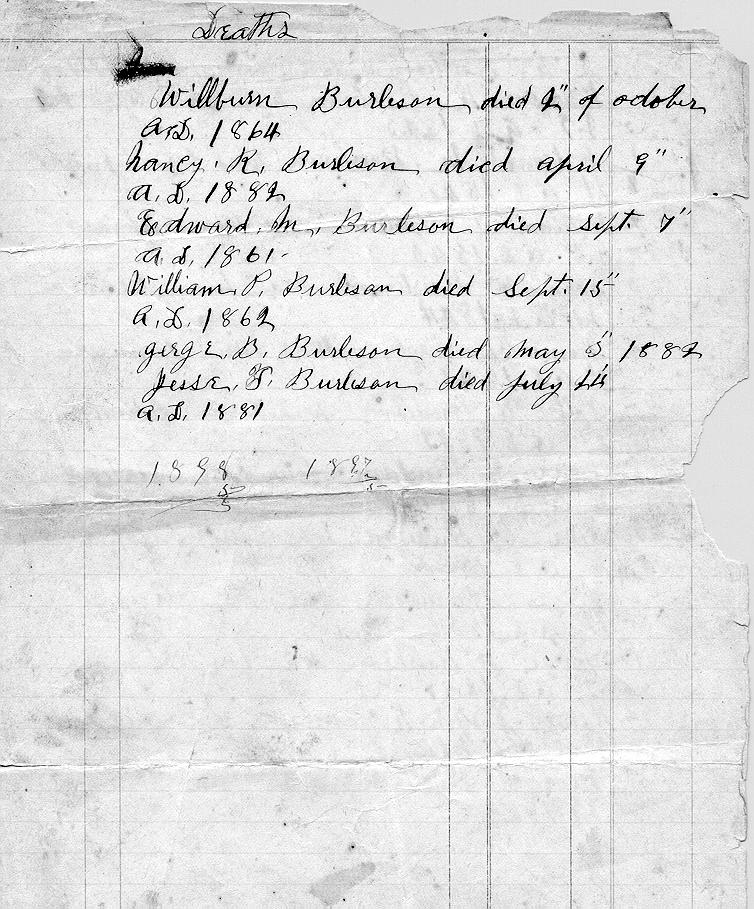 Deaths
Willburn Burleson died 2" of october
A.D. 1864
Nancy. R. Burleson died april 9"
a. D. 1882
Edward. M. Burleson died Sept. 7"
a. D. 1861.
William P. Burleson died Sept. 15"
A. D. 1862
gerge B. Burleson died may 5" 1882
Jesse. F. Burleson died july 14"
a. D. 1881
1898 1897
5 5
5